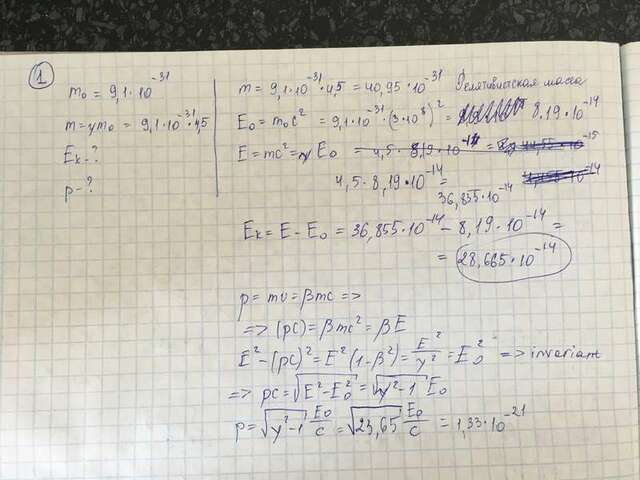 1
m₀ = 9,1·10⁻³¹
m = γm₀ = 9,1·10⁻³¹·4,5
Eₖ - ?
p - ?
m = 9,1·10⁻³¹·4,5 = 40,95·10⁻³¹ Релятивистская масса
E₀ = m₀c² = 9,1·10⁻³¹·(3·10⁸)² = 8,19·10⁻¹⁴
E = mc² = γE₀ = 4,5·8,19·10⁻¹⁴ =
4,5·8,19·10⁻¹⁴ = 36,855·10⁻¹⁴
Eₖ = E - E₀ = 36,855·10⁻¹⁴ - 8,19·10⁻¹⁴ =
= 28,665·10⁻¹⁴
p = mv = βmc =>
=> (pc) = βmc² = βE
E² - (pc)² = E²(1-β²) = E²/γ² = E₀² => invariant
=> pc = √(E² - E₀²) = √(γ² - 1) E₀
p = √(γ² - 1) E₀/c = √23,65 E₀/c = 1,33·10⁻²¹